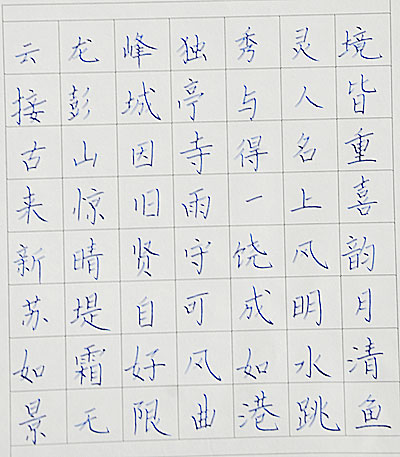 云龙峰独秀灵境
接彭城亭与人皆
古山因寺得名重
来惊旧雨一上喜
新晴贤守饶风韵
苏堤自可成明月
如霜好风如水清
景无限曲港跳鱼